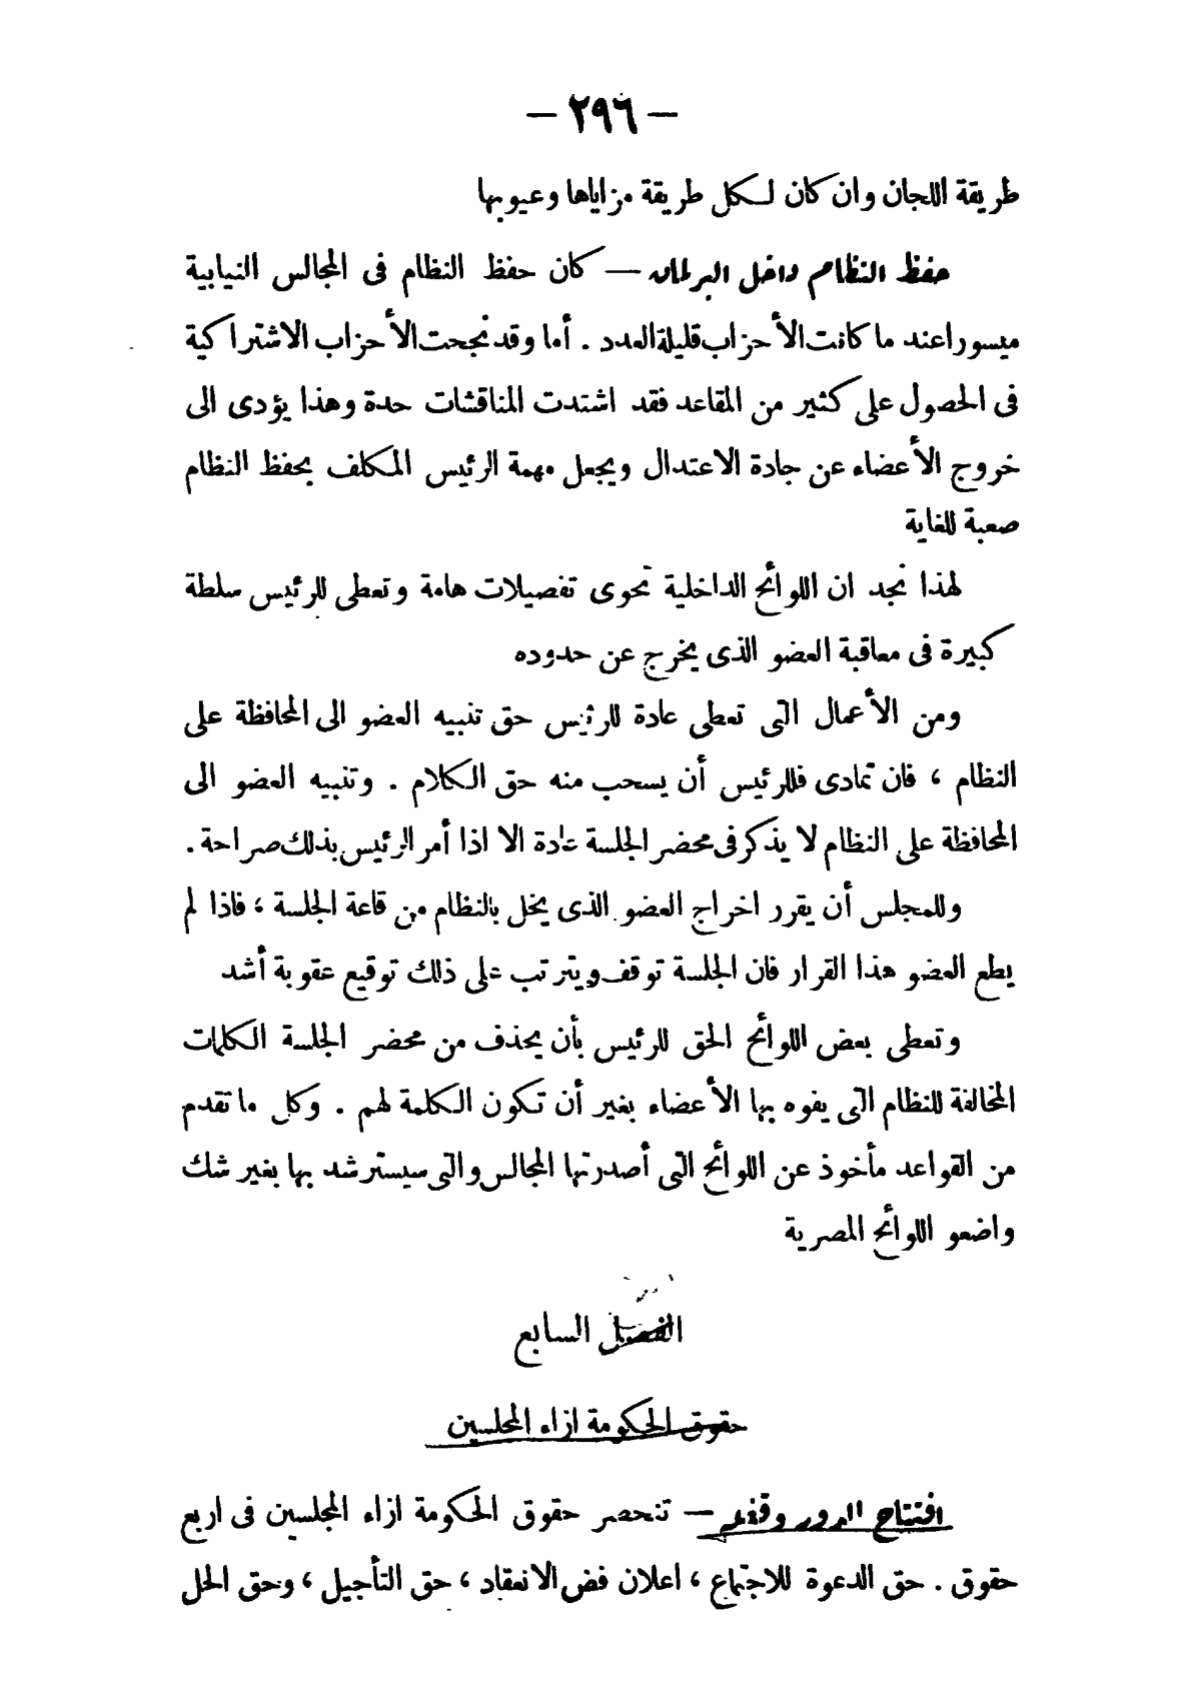 — ٢٩٦ —
طريقة اللجان وان كان لكل طريقة مزاياها وعيوبها
حفظ النظام داخل البرلمان — كان حفظ النظام فى المجالس النيابية
ميسورا عند ما كانت الأحزاب قليلة العدد . أما وقد نجحت الأحزاب الاشتراكية
فى الحصول على كثير من المقاعد فقد اشتدت المناقشات حدة وهذا يؤدى الى
خروج الأعضاء عن جادة الاعتدال ويجعل مهمة الرئيس المكلف بحفظ النظام
صعبة للغاية
لهذا نجد ان اللوائح الداخلية تحوى تفصيلات هامة وتعطى للرئيس سلطة
كبيرة فى معاقبة العضو الذى يخرج عن حدوده
ومن الأعمال التى تعطى عادة للرئيس حق تنبيه العضو الى المحافظة على
النظام ، فان تمادى فللرئيس أن يسحب منه حق الكلام . وتنبيه العضو الى
المحافظة على النظام لا يذكر فى محضر الجلسة عادة الا اذا أمر الرئيس بذلك صراحة .
وللمجلس أن يقرر اخراج العضو الذى يخل بالنظام من قاعة الجلسة ، فاذا لم
يطع العضو هذا القرار فان الجلسة توقف ويترتب على ذلك توقيع عقوبة أشد
وتعطى بعض اللوائح الحق للرئيس بأن يحذف من محضر الجلسة الكلمات
المخالفة للنظام التى يفوه بها الأعضاء بغير أن تكون الكلمة لهم . وكل ما تقدم
من القواعد مأخوذ عن اللوائح التى أصدرتها المجالس والتى سيسترشد بها بغير شك
واضعو اللوائح المصرية
الفصل السابع
حقوق الحكومة ازاء المجلسين
افتتاح الدور وقفله — تنحصر حقوق الحكومة ازاء المجلسين فى اربع
حقوق . حق الدعوة للاجتماع ، اعلان فض الانعقاد ، حق التأجيل ، وحق الحل